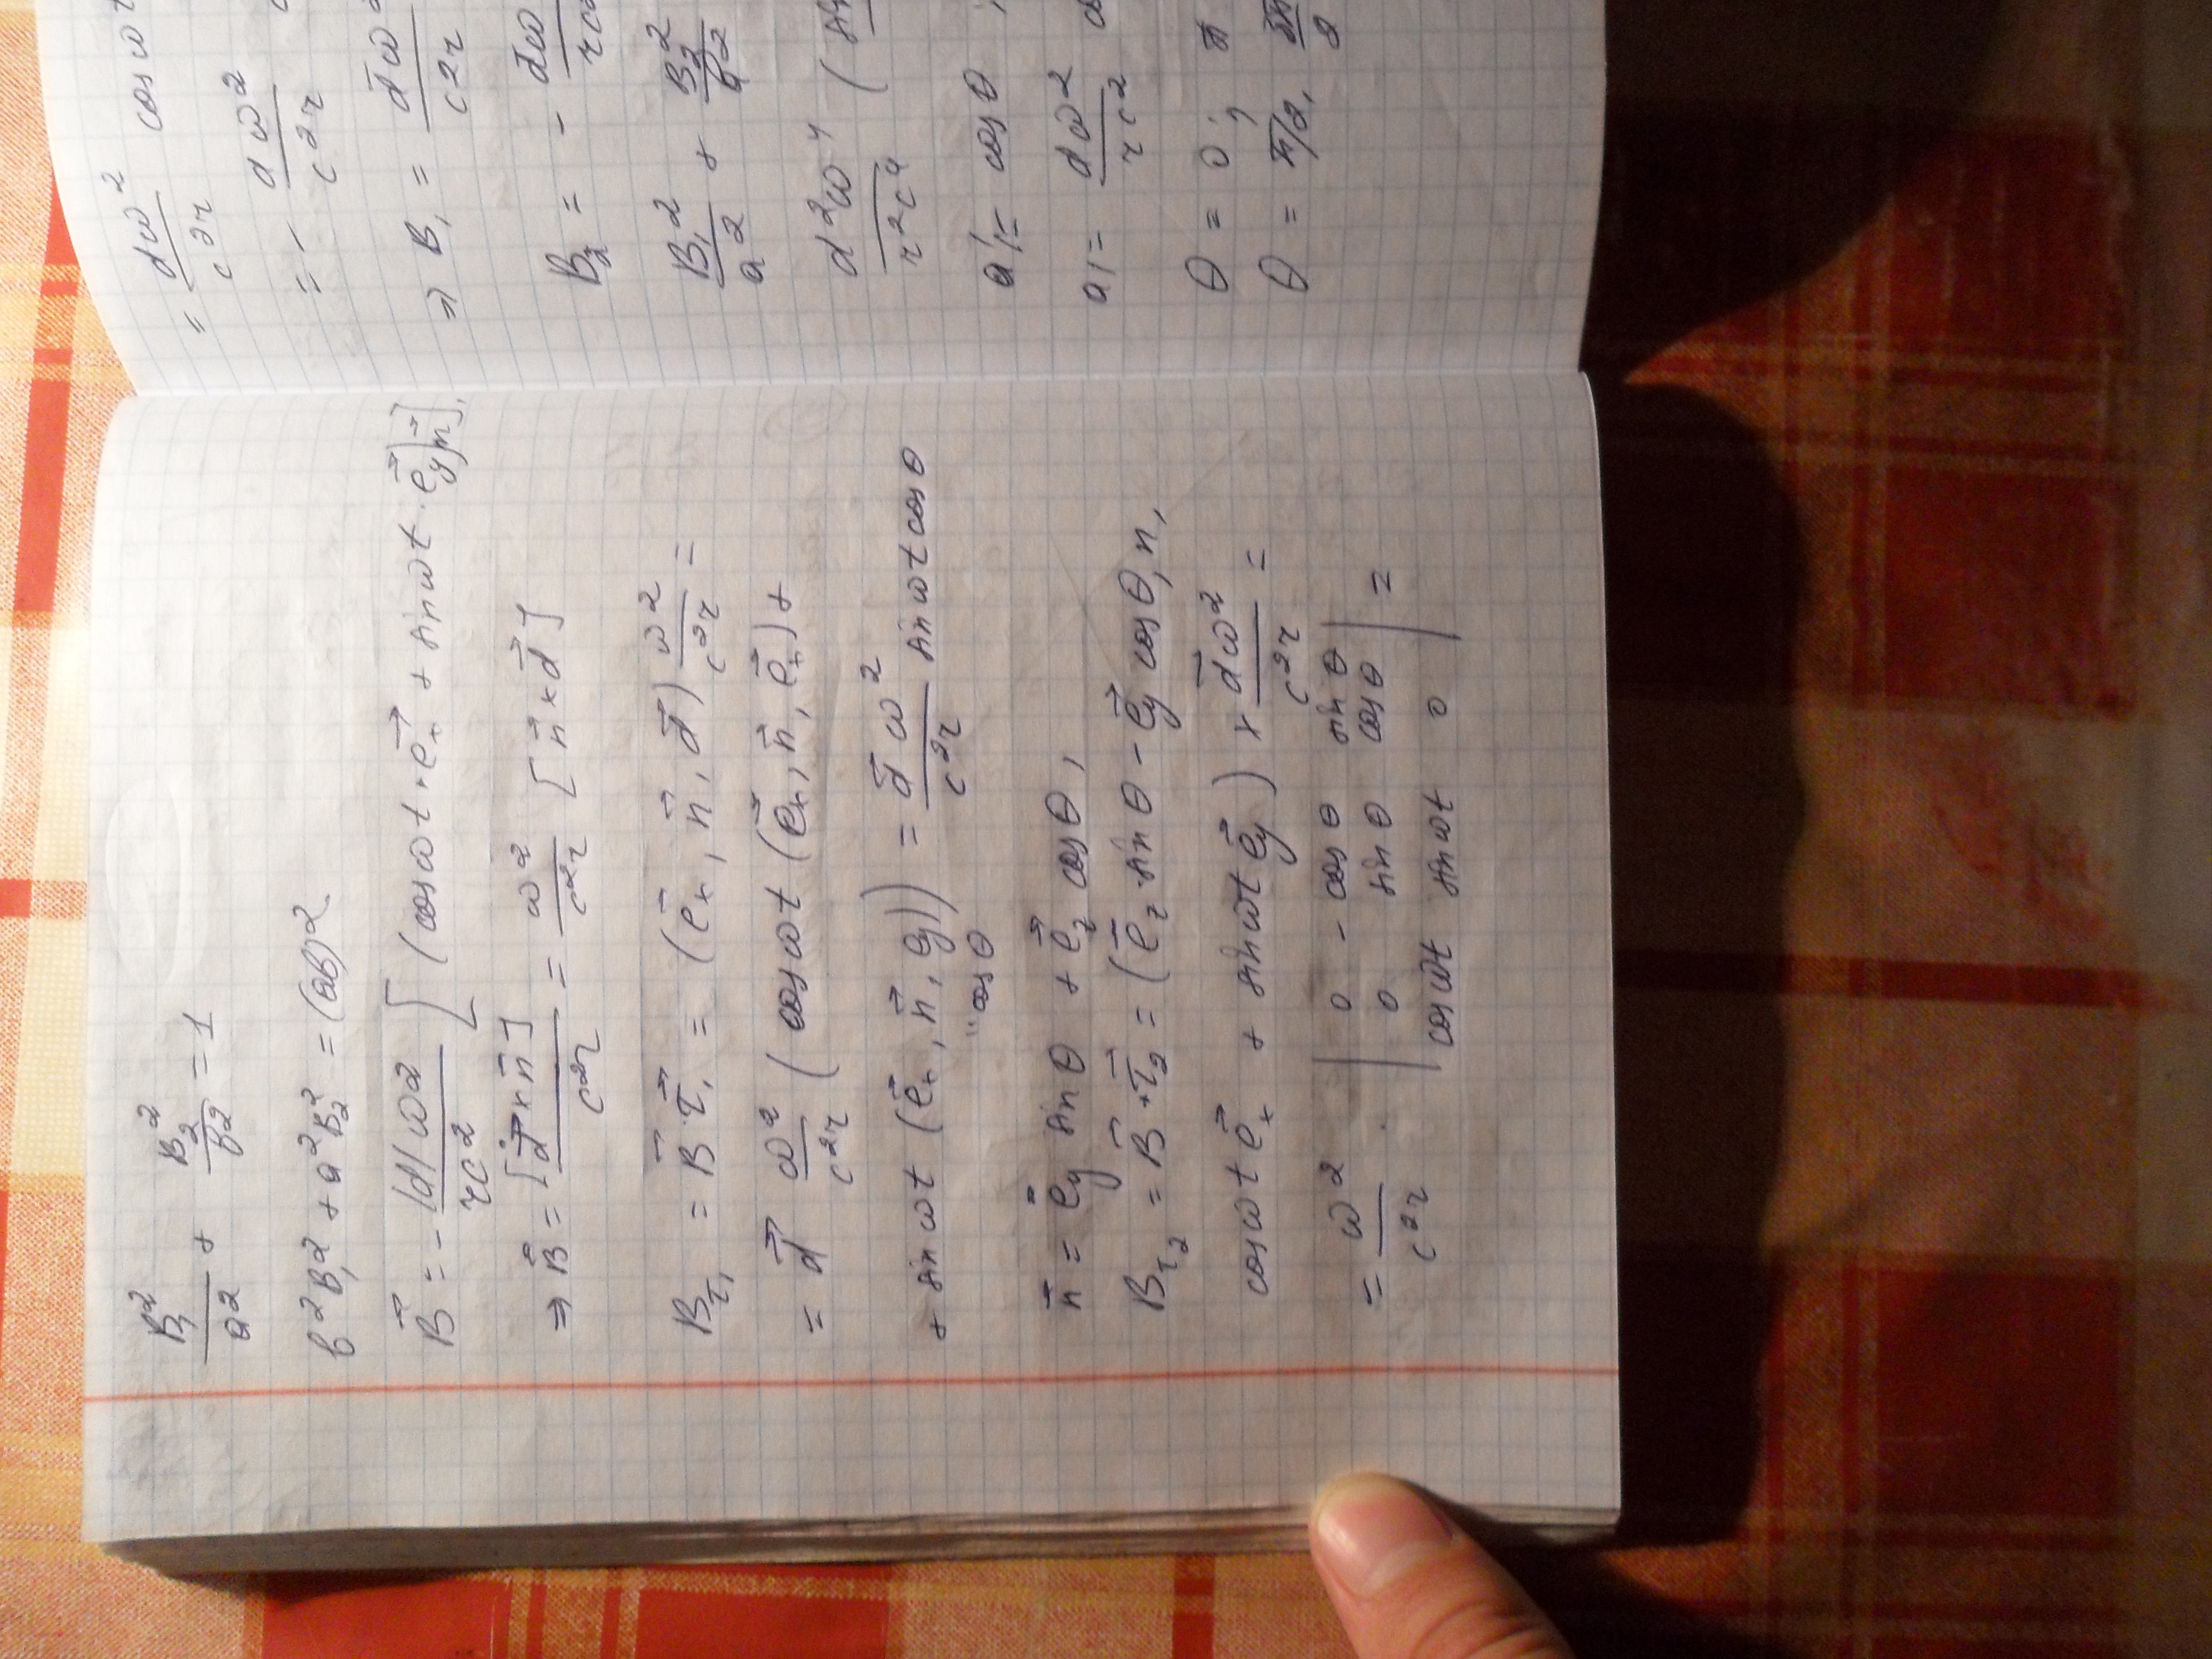 B₁²/a² + B₂²/в² = 1
в²B₁² + a²B₂² = (aв)².
B⃗ = - |d|ω²/rc² [(cosωt·e⃗ₓ + sinωt·e⃗y)n⃗],
⇒ B⃗ = [d̈⃗×n⃗]/c²r = ω²/c²r [n⃗×d⃗]
Bτ₁ = B⃗·τ⃗₁ = (e⃗ₓ, n⃗, d⃗) ω²/c²r =
= d⃗ ω²/c²r (cosωt (e⃗ₓ, n⃗, e⃗ₓ) +
+ sinωt (e⃗ₓ, n⃗, e⃗y)) = d⃗ω²/c²r sinωt cosθ
"cosθ
n⃗ = e⃗y sinθ + e⃗z cosθ,
Bτ₂ = B⃗×τ⃗₂ = (e⃗z·sinθ - e⃗y cosθ, n,
cosωt e⃗ₓ + sinωt e⃗y) × d⃗ω²/c²r =
= ω²/c²r · | 0 - cosθ sinθ
0 sinθ cosθ
cosωt sinωt 0 | =
= dω²/c²r cosωt
= - dω²/c²r
⇒ B₁ = dω²/c²r
B₂ = - dω
B₁²/a² + B₂²/в²
d²ω⁴/r²c⁴ (
a₁ = cosθ
a₁ = dω²/rc²
θ = 0;
θ = π/2,